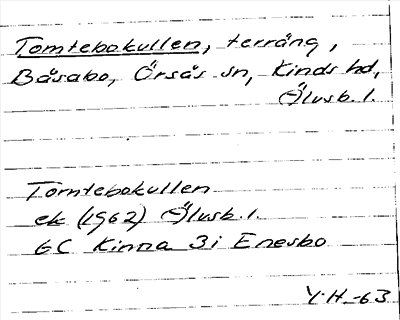 Tomtebokullen, terräng,
Båsabo, Örsås sn, Kinds hd,
Älvsb. l.
Tomtebokullen
ek (1962) Älvsb. l.
6C Kinna 3i Enesbo
Y.H. -63